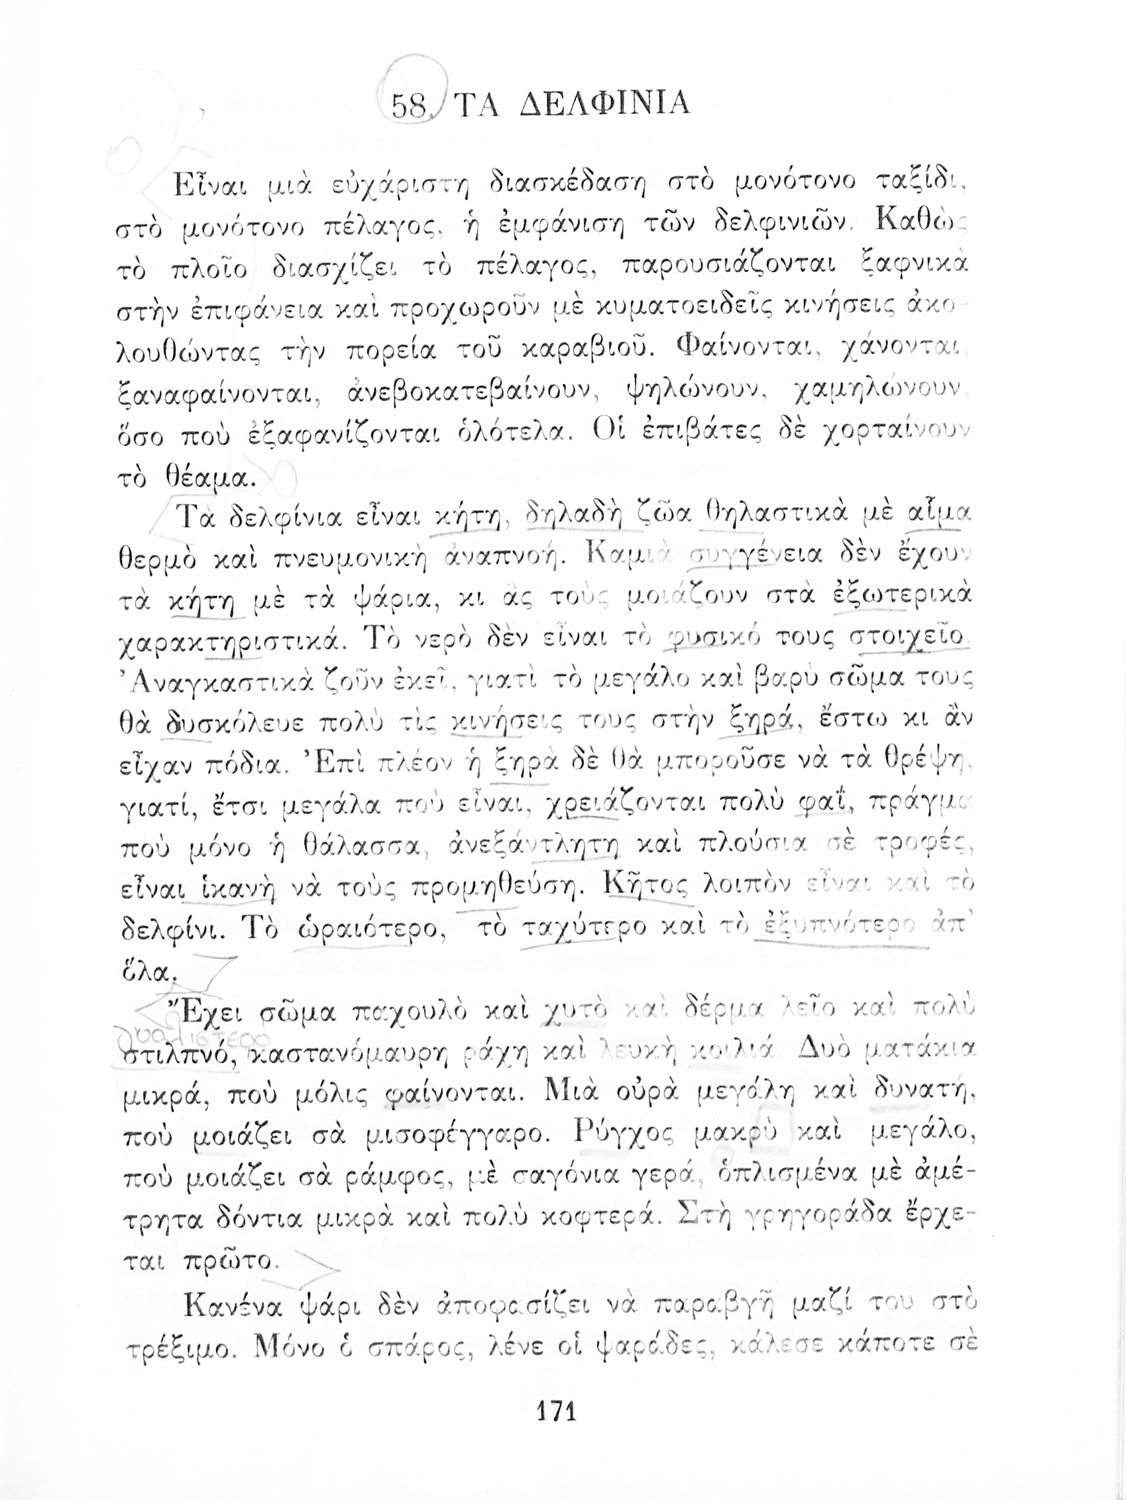 58. ΤΑ ΔΕΛΦΙΝΙΑ
Εἶναι μιὰ εὐχάριστη διασκέδαση στὸ μονότονο ταξίδι,
στὸ μονότονο πέλαγος, ἡ ἐμφάνιση τῶν δελφινιῶν. Καθὼς
τὸ πλοῖο διασχίζει τὸ πέλαγος, παρουσιάζονται ξαφνικὰ
στὴν ἐπιφάνεια καὶ προχωροῦν μὲ κυματοειδεῖς κινήσεις ἀκο-
λουθώντας τὴν πορεία τοῦ καραβιοῦ. Φαίνονται, χάνονται,
ξαναφαίνονται, ἀνεβοκατεβαίνουν, ψηλώνουν, χαμηλώνουν,
ὅσο ποὺ ἐξαφανίζονται ὁλότελα. Οἱ ἐπιβάτες δὲ χορταίνουν
τὸ θέαμα.
Τὰ δελφίνια εἶναι κήτη, δηλαδὴ ζῶα θηλαστικὰ μὲ αἷμα
θερμὸ καὶ πνευμονικὴ ἀναπνοή. Καμιὰ συγγένεια δὲν ἔχουν
τὰ κήτη μὲ τὰ ψάρια, κι ἂς τοὺς μοιάζουν στὰ ἐξωτερικὰ
χαρακτηριστικά. Τὸ νερὸ δὲν εἶναι τὸ φυσικό τους στοιχεῖο.
Ἀναγκαστικὰ ζοῦν ἐκεῖ, γιατὶ τὸ μεγάλο καὶ βαρὺ σῶμα τους
θὰ δυσκόλευε πολὺ τὶς κινήσεις τους στὴν ξηρά, ἔστω κι ἂν
εἶχαν πόδια. Ἐπὶ πλέον ἡ ξηρὰ δὲ θὰ μποροῦσε νὰ τὰ θρέψη,
γιατί, ἔτσι μεγάλα ποὺ εἶναι, χρειάζονται πολὺ φαΐ, πράγμα
ποὺ μόνο ἡ θάλασσα, ἀνεξάντλητη καὶ πλούσια σὲ τροφές,
εἶναι ἱκανὴ νὰ τοὺς προμηθεύση. Κῆτος λοιπὸν εἶναι καὶ τὸ
δελφίνι. Τὸ ὡραιότερο, τὸ ταχύτερο καὶ τὸ ἐξυπνότερο ἀπ'
ὅλα.
Ἔχει σῶμα παχουλὸ καὶ χυτὸ καὶ δέρμα λεῖο καὶ πολὺ
γυαλιστερο
στιλπνό, καστανόμαυρη ράχη καὶ λευκὴ κοιλιά. Δυὸ ματάκια
μικρά, ποὺ μόλις φαίνονται. Μιὰ οὐρὰ μεγάλη καὶ δυνατή,
ποὺ μοιάζει σὰ μισοφέγγαρο. Ρύγχος μακρὺ καὶ μεγάλο,
ποὺ μοιάζει σὰ ράμφος, μὲ σαγόνια γερά, ὁπλισμένα μὲ ἀμέ-
τρητα δόντια μικρὰ καὶ πολὺ κοφτερά. Στὴ γρηγοράδα ἔρχε-
ται πρῶτο.
Κανένα ψάρι δὲν ἀποφασίζει νὰ παραβγῆ μαζί του στὸ
τρέξιμο. Μόνο ὁ σπάρος, λένε οἱ ψαράδες, κάλεσε κάποτε σὲ
171